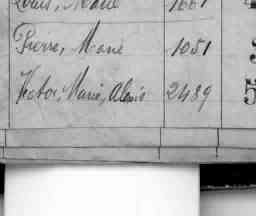 Louis, Marie 1001
Pierre, Marie 1051
Victor, Marie, Alexis 2489
5